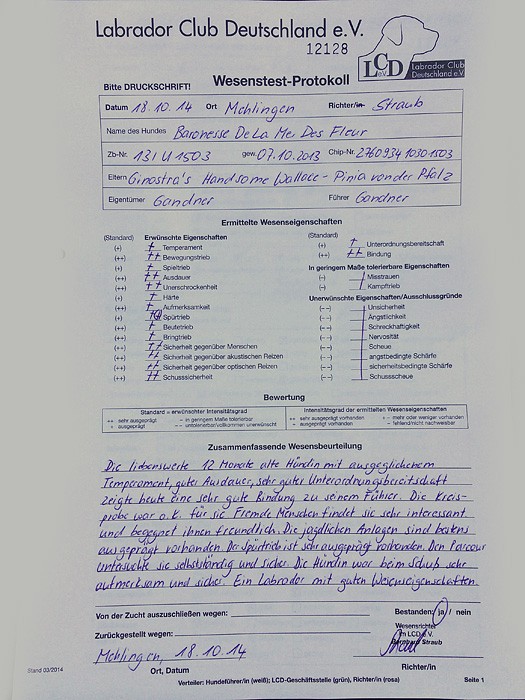 Labrador Club Deutschland e.V.
12128
LCD e.V. Labrador Club Deutschland e.V.
Bitte DRUCKSCHRIFT! Wesenstest-Protokoll
Datum 18.10.14 Ort Mehlingen Richter/in Straub
Name des Hundes Baronesse De La Mer Des Fleur
Zb-Nr. 131 U 1503 gew. 07.10.2013 Chip-Nr. 276093410301503
Eltern Ginostra's Handsome Wallace - Pinia von der Pfalz
Eigentümer Gandner Führer Gandner
Ermittelte Wesenseigenschaften
(Standard) Erwünschte Eigenschaften
(+) + Temperament
(++) ++ Bewegungstrieb
(+) + Spieltrieb
(++) ++ Ausdauer
(++) ++ Unerschrockenheit
(+) + Härte
(+) + Aufmerksamkeit
(+) Spürtrieb
(+) + Beutetrieb
(+) + Bringtrieb
(++) ++ Sicherheit gegenüber Menschen
(++) ++ Sicherheit gegenüber akustischen Reizen
(++) ++ Sicherheit gegenüber optischen Reizen
(++) ++ Schusssicherheit
(Standard)
(+) + Unterordnungsbereitschaft
(++) ++ Bindung
In geringem Maße tolerierbare Eigenschaften
(-) Misstrauen
(-) Kampftrieb
Unerwünschte Eigenschaften/Ausschlussgründe
(--) Unsicherheit
(--) Ängstlichkeit
(--) Schreckhaftigkeit
(--) Nervosität
(--) Scheue
(--) angstbedingte Schärfe
(--) sicherheitsbedingte Schärfe
(--) Schussscheue
Bewertung
Standard = erwünschter Intensitätsgrad
++ sehr ausgeprägt - in geringem Maße tolerierbar
+ ausgeprägt -- untolerierbar/vollkommen unerwünscht
Intensitätsgrad der ermittelten Wesenseigenschaften
++ sehr ausgeprägt vorhanden - mehr oder weniger vorhanden
+ ausgeprägt vorhanden -- fehlend/nicht nachweisbar
Zusammenfassende Wesensbeurteilung
Die liebenswerte 12 Monate alte Hündin mit ausgeglichenem
Temperament, guter Ausdauer, sehr guter Unterordnungsbereitschaft
zeigte heute eine sehr gute Bindung zu seinem Führer. Die Kreis-
probe war o.k. für sie. Fremde Menschen findet sie sehr interessant
und begegnet ihnen freundlich. Die jagdlichen Anlagen sind bestens
ausgeprägt vorhanden. Der Spürtrieb ist sehr ausgeprägt vorhanden. Den Parcour
untersuchte sie selbstständig und sicher. Die Hündin war beim Schuß sehr
aufmerksam und sicher. Ein Labrador mit guten Wesenseigenschaften.
Von der Zucht auszuschließen wegen: Bestanden: ja / nein
Zurückgestellt wegen:
Wesensrichter
im LCD e.V.
Bernhard Straub
Mehlingen, 18.10.14
Stand 03/2014 Ort, Datum Richter/in
Verteiler: Hundeführer/in (weiß); LCD-Geschäftsstelle (grün), Richter/in (rosa) Seite 1